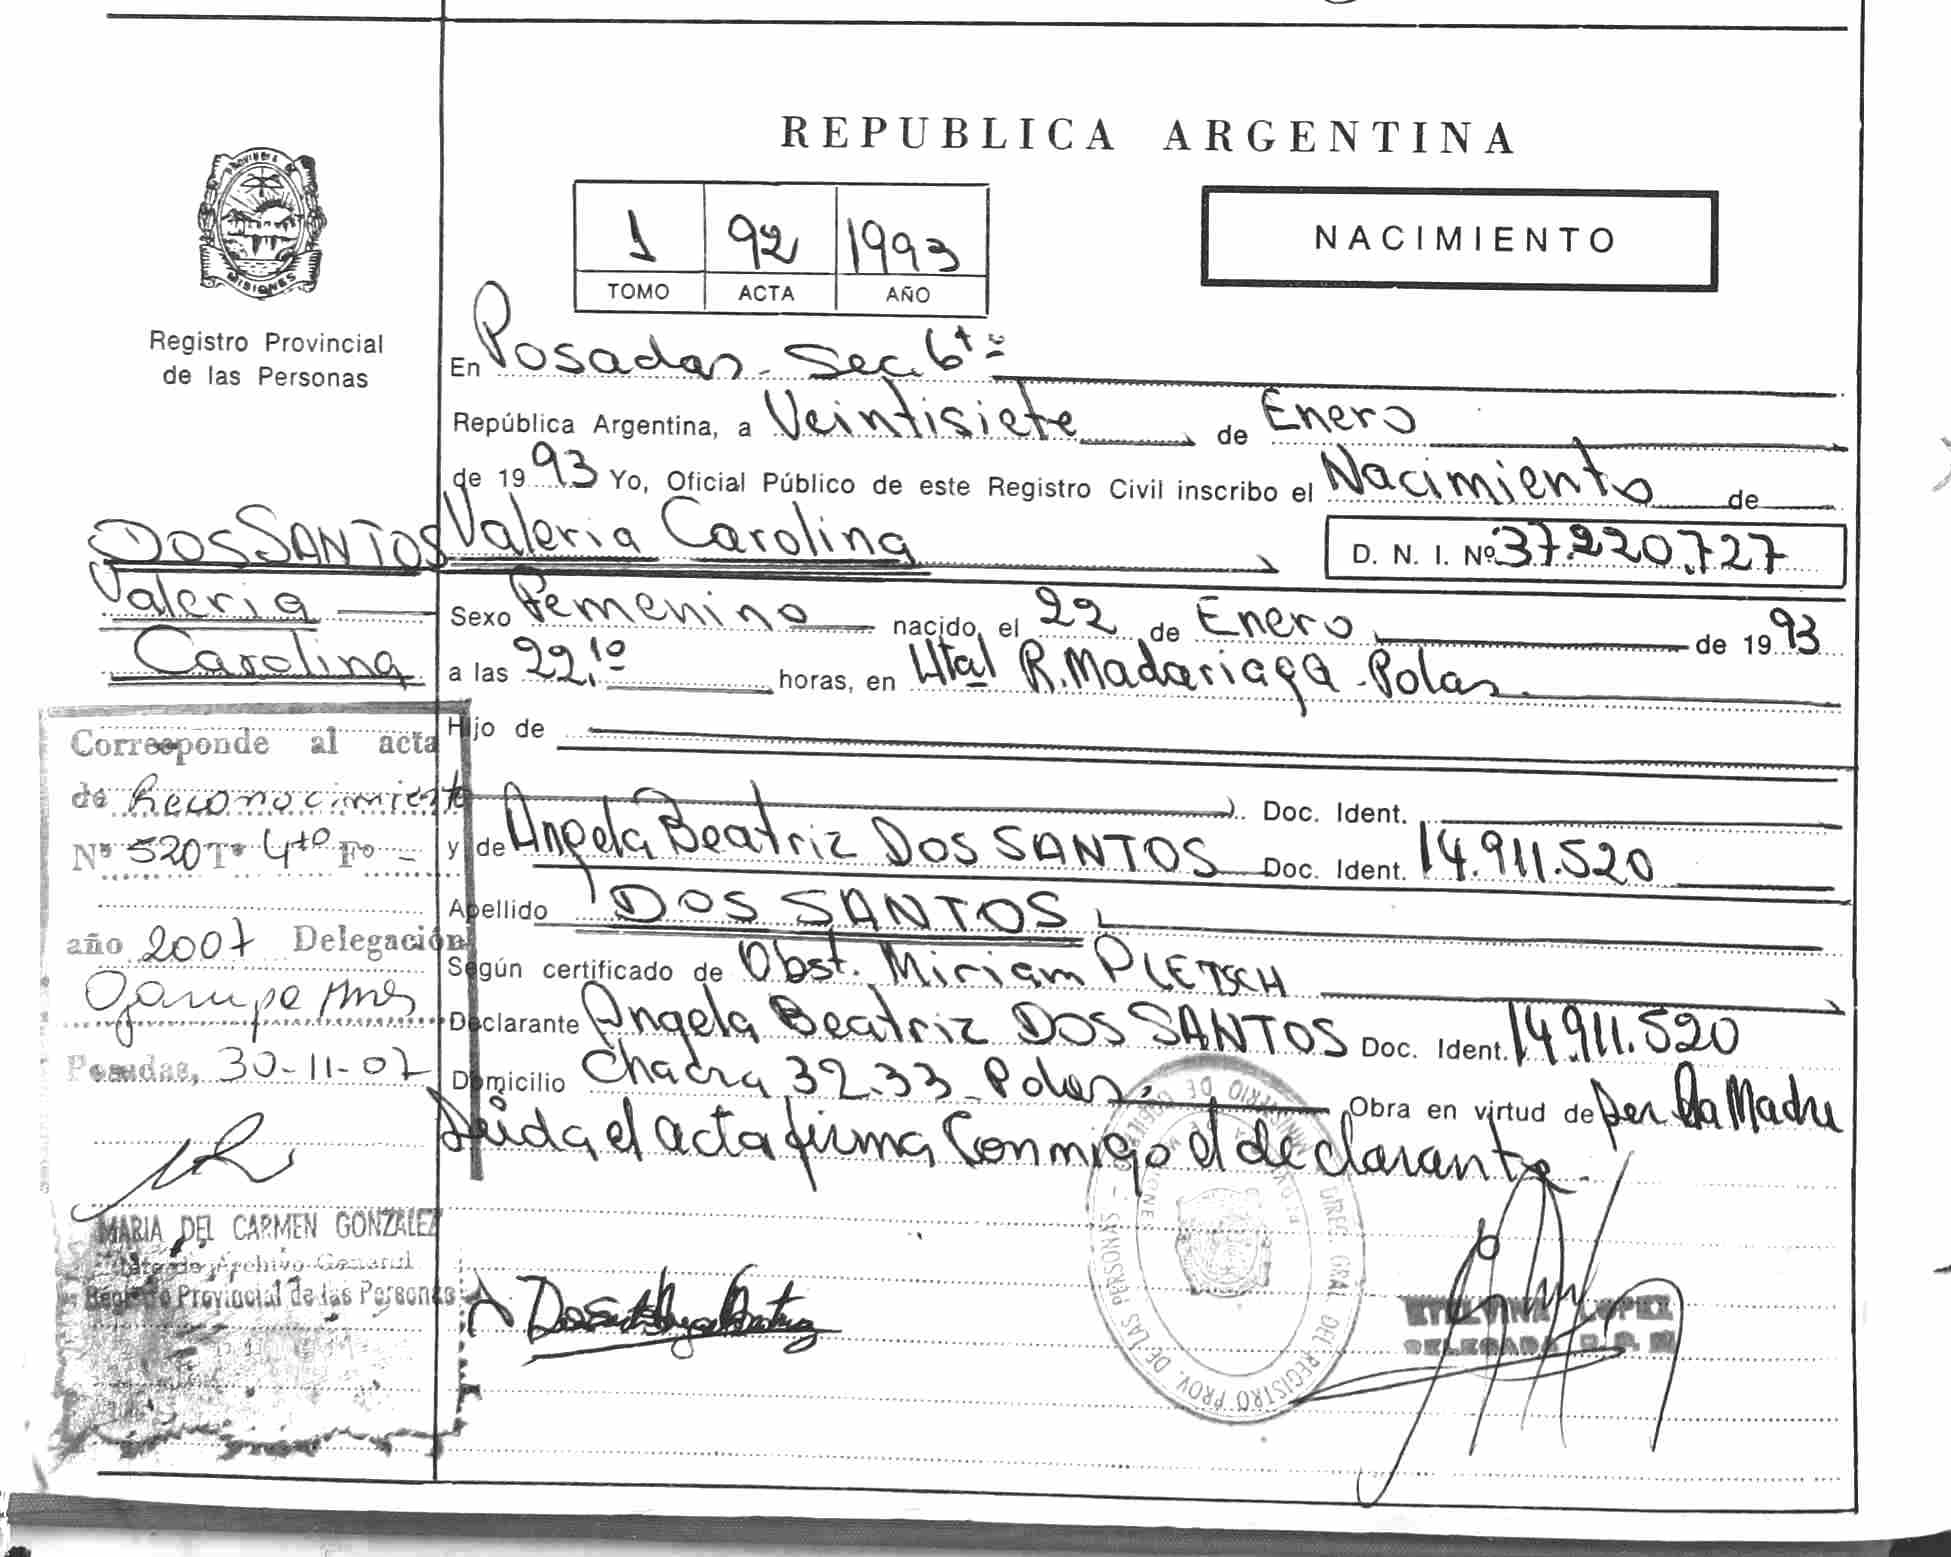 REPUBLICA ARGENTINA
PROVINCIA DE
MISIONES
Registro Provincial
de las Personas
1 92 1993
TOMO ACTA AÑO
NACIMIENTO
En Posadas - Sec. 6ta
República Argentina, a Veintisiete de Enero
de 1993 Yo, Oficial Público de este Registro Civil inscribo el Nacimiento de
Valeria Carolina D. N. I. Nº 37.220.727
Sexo Femenino nacido el 22 de Enero de 1993
a las 22,10 horas, en Htal R. Madariaga - Pdas.
Hijo de
Doc. Ident.
y de Angela Beatriz DOS SANTOS Doc. Ident. 14.911.520
Apellido DOS SANTOS
Según certificado de Obst. Miriam PLETSCH
Declarante Angela Beatriz DOS SANTOS Doc. Ident. 14.911.520
Domicilio Chacra 32-33 - Pdas. Obra en virtud de ser la Madre
Leida el acta firma Conmigo el declarante.
DOS SANTOS
Valeria
Carolina
Corresponde al acta
de Reconocimiento
Nº 520 Tº 4to Fº -
año 2007 Delegación
Posadas, 30-11-07
MARIA DEL CARMEN GONZALEZ
Jefe de Archivo General
Registro Provincial de las Personas
MINISTERIO DE GOBIERNO
DIREC. GRAL. DEL REGISTRO PROV. DE LAS PERSONAS
ETELVINA LOPEZ
DELEGADA R. P. P.